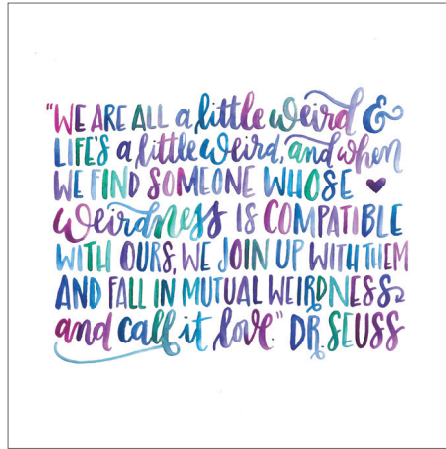 "WE ARE ALL a little weird &
LIFE'S a little weird, and when
WE FIND SOMEONE WHOSE
weirdness IS COMPATIBLE
WITH OURS, WE JOIN UP WITH THEM
AND FALL IN MUTUAL WEIRDNESS
and call it love." DR. SEUSS